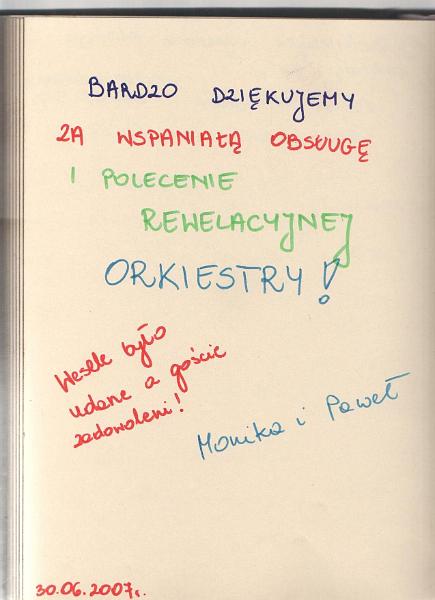 BARDZO DZIĘKUJEMY
ZA WSPANIAŁĄ OBSŁUGĘ
I POLECENIE
REWELACYJNEJ
ORKIESTRY!
Wesele było
udane a goście
zadowoleni!
Monika i Paweł
30.06.2007r.